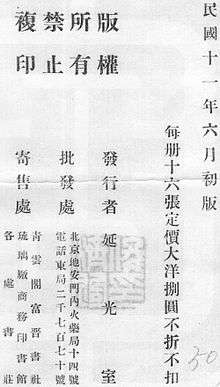 民國十一年六月初版
每册十六張定價大洋捌圓不折不扣
版權所有
禁止複印
發行者 延光室
北京地安門內火藥局十四號
電話東局二千七百七十號
批發處
寄售處
青雲閣富晉書社
琉璃廠商務印書館
各處書莊
30